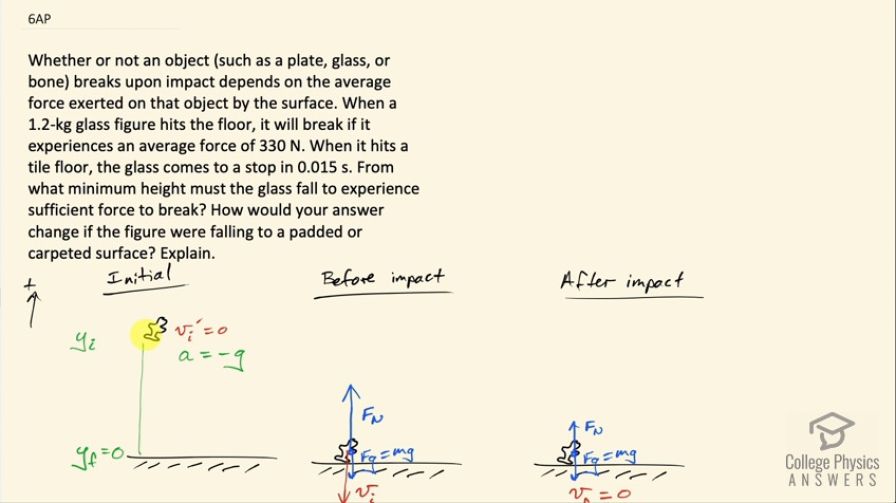 6AP
Whether or not an object (such as a plate, glass, or
bone) breaks upon impact depends on the average
force exerted on that object by the surface. When a
1.2-kg glass figure hits the floor, it will break if it
experiences an average force of 330 N. When it hits a
tile floor, the glass comes to a stop in 0.015 s. From
what minimum height must the glass fall to experience
sufficient force to break? How would your answer
change if the figure were falling to a padded or
carpeted surface? Explain.
+
Initial
Before impact
After impact
yi
vi' = 0
a = -g
FN
FN
yf = 0
Fg = mg
Fg = mg
vi
= 0
College Physics
ANSWERS